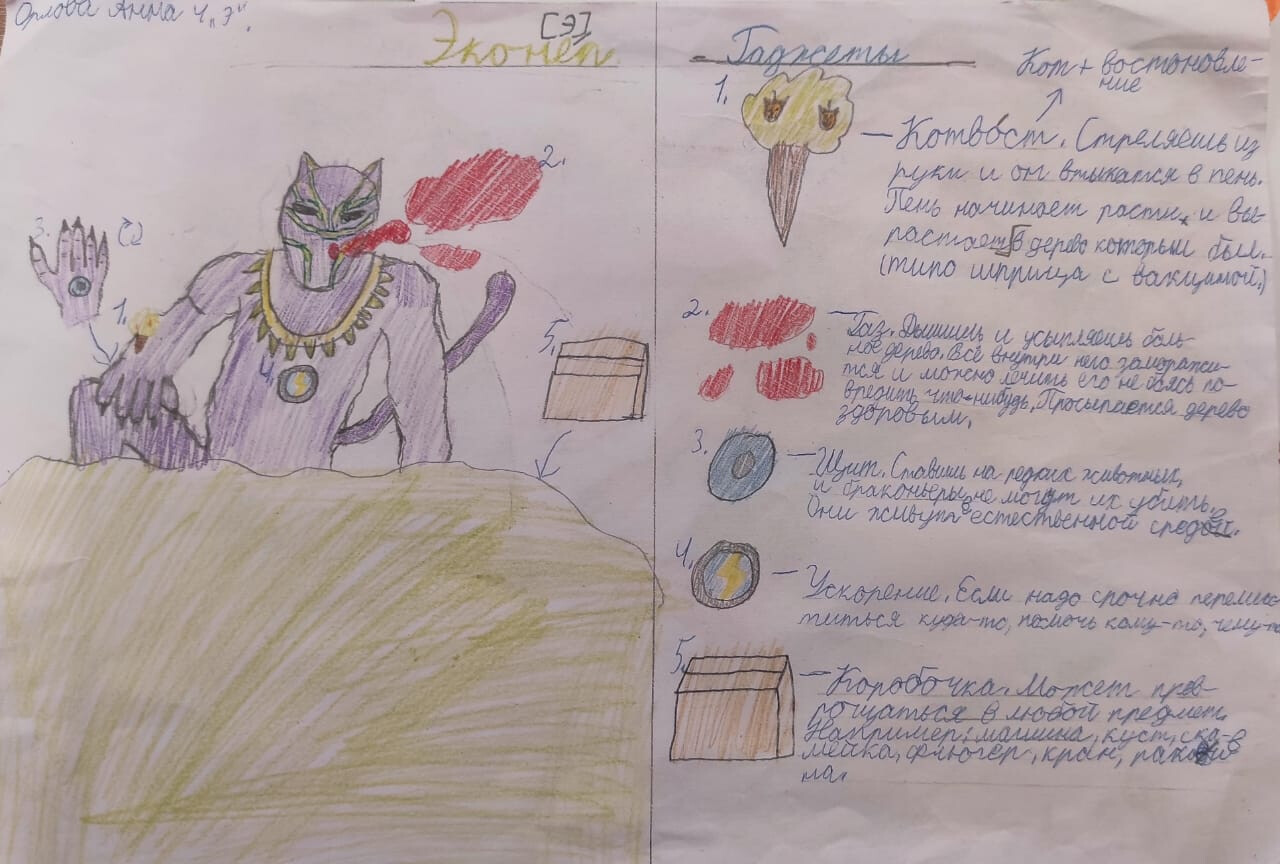 Орлова Анна 4 "Э".
[Э]
Эконеп
Гаджеты
Кот + востоновле-
ние
1.
— Котввст. Стреляешь из
руки и он втыкатся в пень.
Пень начинает расти и вы-
растает в дерево которым был.
(типо шприца с вакциной.)
2.
— Газ. Дышишь и усыпляешь боль-
ное дерево. Всё внутри него заморажи-
тся и можно лечить его не боясь по-
вредить что-нибудь. Просыпается дерево
здоровым.
3.
— Щит. Ставишь на редких животных,
и браконьеры не могут их убить.
Они живут в естественной среде.
4.
— Ускорение. Если надо срочно перемес-
титься куда-то, помочь кому-то, чему-то
5.
— Коробочка. Может прев-
рощаться в любой предмет.
Например: машина, куст, ска-
мейка, флюгер, кран, ракови
на.
2.
3.
1.
4.
5.